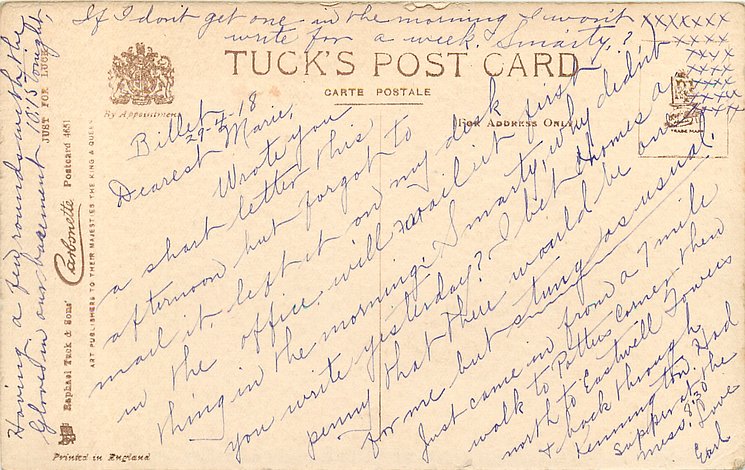 If I don't get one in the morning I won't
write for a week. Smarty?
XXXXXXX
XXXXXX
XXXX
XXXX
TUCK'S POST CARD
CARTE POSTALE
By Appointment
For Address Only.
TRADE MARK
Billet
29-4-18
Dearest Marie,
Wrote you
a short letter this
afternoon but forgot to
mail it, left it on my desk
in the office. Will mail it first
thing in the morning. Smarty, why didn't
you write yesterday? I bet Thomas a
penny that there would be one
for me but stung as usual.
Just came in from a 7 mile
walk to Potters Corner then
north to Eastwell Towers
& back through
Kennington. Had
supper at the
mess. 8:30
Love
Earl
Having a few rounds with the
Gloves in our basement 10:15 tonight,
JUST FOR LUCK
Raphael Tuck & Sons' "Carbonette" Postcard 4651
ART PUBLISHERS TO THEIR MAJESTIES THE KING & QUEEN
Printed in England